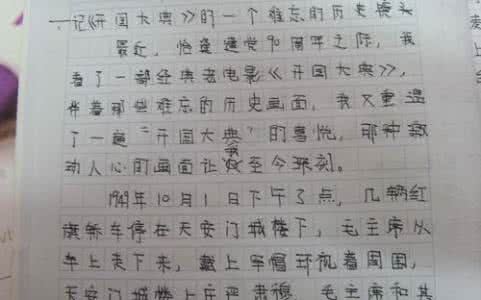 ——记《开国大典》的一个难忘的历史镜头
最近，恰逢建党90周年之际，我
看了一部经典老电影《开国大典》，
伴着那些难忘的历史画面，我又重温
了一遍“开国大典”的喜悦，那种激
动人心的画面让我至今深刻。
1949年10月1日下午3点，几辆红
旗轿车停在天安门城楼下，毛主席从
车上走下来，戴上军帽环视着周围，
天安门城楼上庄严肃穆，毛主席和其